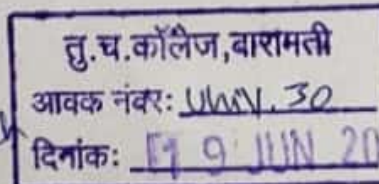 तु.च.कॉलेज,बारामती
आवक नंबर: 30
दिनांक: 19 JUN 20